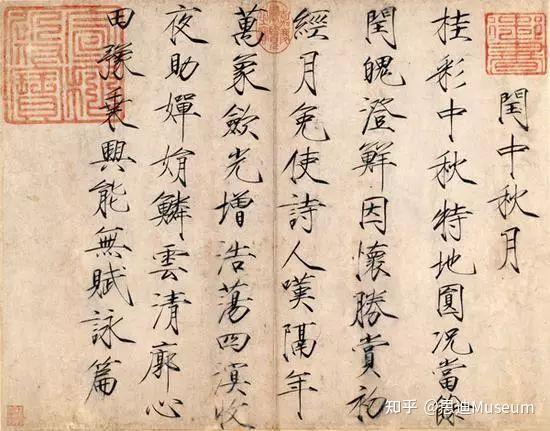 閏中秋月
桂彩中秋特地圓况當餘
閏魄澄鮮因懷勝賞初
經月免使詩人嘆隔年
萬象斂光增浩蕩四溟收
夜助嬋娟鱗雲清廓心
田豫乘興能無賦詠篇
御書
知乎 @迪Museum